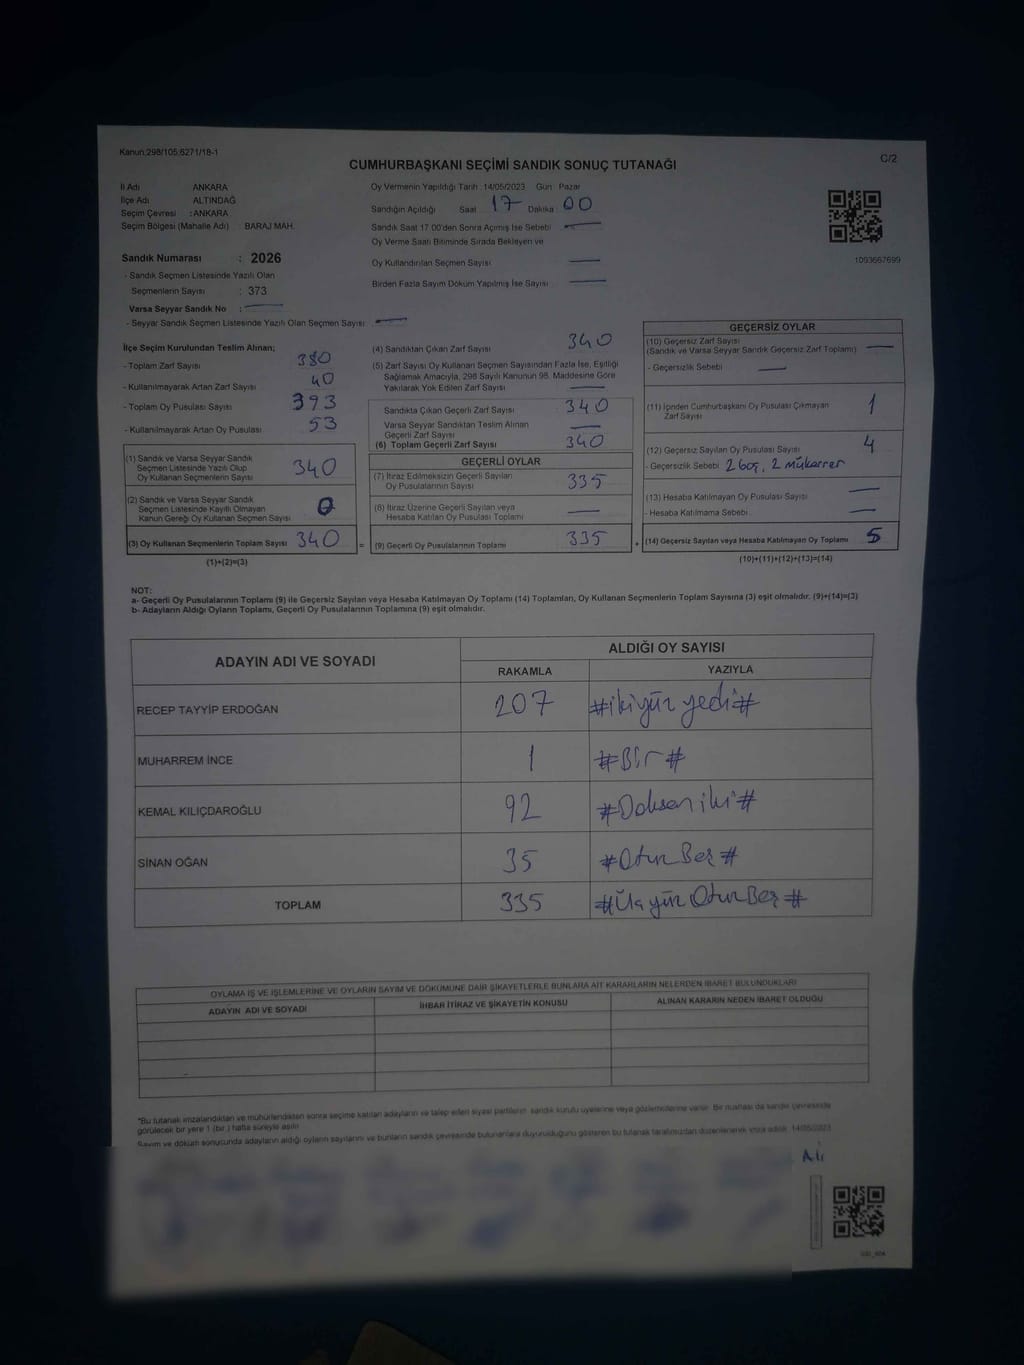 Kanun:298/105;6271/18-1
C/2
CUMHURBAŞKANI SEÇİMİ SANDIK SONUÇ TUTANAĞI
İl Adı ANKARA
İlçe Adı ALTINDAĞ
Seçim Çevresi : ANKARA
Seçim Bölgesi (Mahalle Adı) BARAJ MAH.
Oy Vermenin Yapıldığı Tarih :14/05/2023 Gün Pazar
Sandığın Açıldığı Saat 17 Dakika 00
Sandık Saat 17:00'den Sonra Açımış İse Sebebi —
Oy Verme Saati Bitiminde Sırada Bekleyen ve
Oy Kullandırılan Seçmen Sayısı —
Birden Fazla Sayım Döküm Yapılmış İse Sayısı —
1093667699
Sandık Numarası : 2026
- Sandık Seçmen Listesinde Yazılı Olan
Seçmenlerin Sayısı : 373
Varsa Seyyar Sandık No : —
- Seyyar Sandık Seçmen Listesinde Yazılı Olan Seçmen Sayısı —
İlçe Seçim Kurulundan Teslim Alınan;
- Toplam Zarf Sayısı 380
- Kullanılmayarak Artan Zarf Sayısı 40
- Toplam Oy Pusulası Sayısı 393
- Kullanılmayarak Artan Oy Pusulası 53
(1) Sandık ve Varsa Seyyar Sandık
Seçmen Listesinde Yazılı Olup
Oy Kullanan Seçmenlerin Sayısı 340
(2) Sandık ve Varsa Seyyar Sandık
Seçmen Listesinde Kayıtlı Olmayan
Kanun Gereği Oy Kullanan Seçmen Sayısı 0
(3) Oy Kullanan Seçmenlerin Toplam Sayısı 340 =
(1)+(2)=(3)
(4) Sandıktan Çıkan Zarf Sayısı 340
(5) Zarf Sayısı Oy Kullanan Seçmen Sayısından Fazla İse, Eşitliği
Sağlamak Amacıyla, 298 Sayılı Kanunun 98. Maddesine Göre
Yakılarak Yok Edilen Zarf Sayısı —
Sandıkta Çıkan Geçerli Zarf Sayısı 340
Varsa Seyyar Sandıktan Teslim Alınan
Geçerli Zarf Sayısı —
(6) Toplam Geçerli Zarf Sayısı 340
GEÇERLİ OYLAR
(7) İtiraz Edilmeksizin Geçerli Sayılan
Oy Pusulalarının Sayısı 335
(8) İtiraz Üzerine Geçerli Sayılan veya
Hesaba Katılan Oy Pusulası Toplamı —
(9) Geçerli Oy Pusulalarının Toplamı 335 +
GEÇERSİZ OYLAR
(10) Geçersiz Zarf Sayısı
(Sandık ve Varsa Seyyar Sandık Geçersiz Zarf Toplamı) —
- Geçersizlik Sebebi —
(11) İçinden Cumhurbaşkanı Oy Pusulası Çıkmayan
Zarf Sayısı 1
(12) Geçersiz Sayılan Oy Pusulası Sayısı 4
- Geçersizlik Sebebi 2 boş, 2 mükerrer
(13) Hesaba Katılmayan Oy Pusulası Sayısı —
- Hesaba Katılmama Sebebi —
(14) Geçersiz Sayılan veya Hesaba Katılmayan Oy Toplamı 5
(10)+(11)+(12)+(13)=(14)
NOT:
a- Geçerli Oy Pusulalarının Toplamı (9) ile Geçersiz Sayılan veya Hesaba Katılmayan Oy Toplamı (14) Toplamları, Oy Kullanan Seçmenlerin Toplam Sayısına (3) eşit olmalıdır. (9)+(14)=(3)
b- Adayların Aldığı Oyların Toplamı, Geçerli Oy Pusulalarının Toplamına (9) eşit olmalıdır.
ADAYIN ADI VE SOYADI ALDIĞI OY SAYISI
RAKAMLA YAZIYLA
RECEP TAYYİP ERDOĞAN 207 #ikiyüz yedi#
MUHARREM İNCE 1 #Bir#
KEMAL KILIÇDAROĞLU 92 #Doksan iki#
SİNAN OĞAN 35 #Otuz Beş#
TOPLAM 335 #Üç yüz Otuz Beş#
OYLAMA İŞ VE İŞLEMLERİNE VE OYLARIN SAYIM VE DÖKÜMÜNE DAİR ŞİKAYETLERLE BUNLARA AİT KARARLARIN NELERDEN İBARET BULUNDUKLARI
ADAYIN ADI VE SOYADI İHBAR İTİRAZ VE ŞİKAYETİN KONUSU ALINAN KARARIN NEDEN İBARET OLDUĞU
*Bu tutanak imzalandıktan ve mühürlendikten sonra seçime katılan adayların ve talep eden siyasi partilerin sandık kurulu üyelerine veya gözlemcilerine verilir. Bir nüshası da sandık çevresinde
görülecek bir yere 1 (bir) hafta süreyle asılır.
Sayım ve döküm sonucunda adayların aldığı oyların sayılarını ve bunların sandık çevresinde bulunanlara duyurulduğunu gösteren bu tutanak tarafımızdan düzenlenerek imza edildi. 14/05/2023